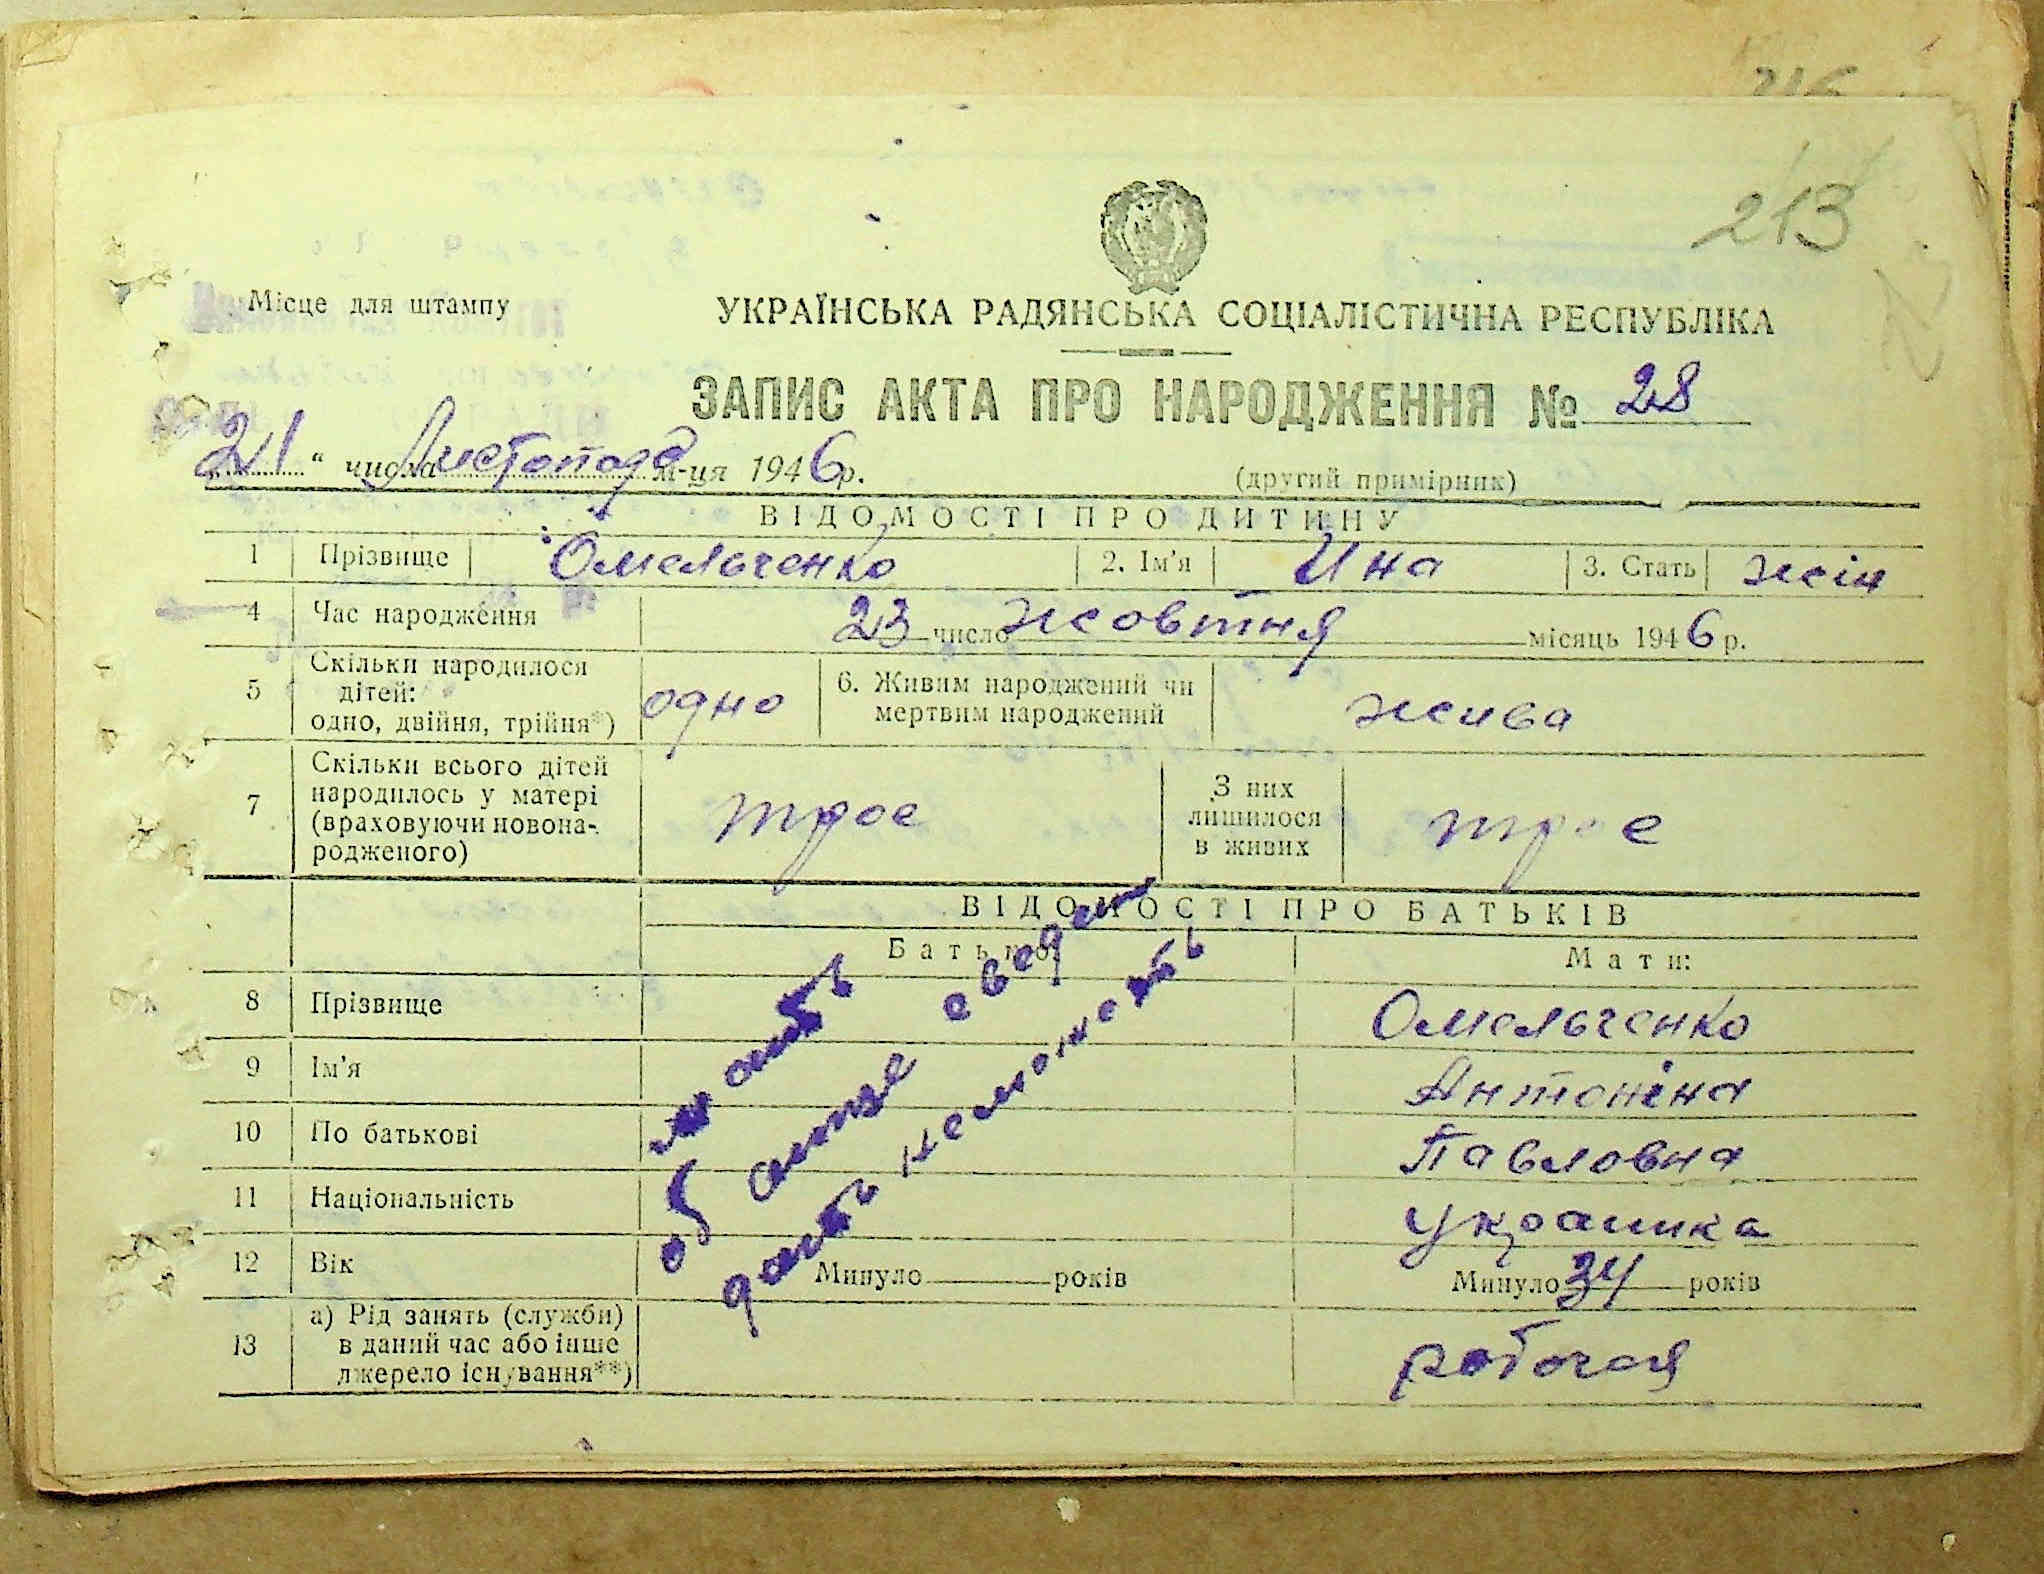 216
213
Місце для штампу
УКРАЇНСЬКА РАДЯНСЬКА СОЦІАЛІСТИЧНА РЕСПУБЛІКА
ЗАПИС АКТА ПРО НАРОДЖЕННЯ № 28
„21“ числа Листопада м-ця 1946 р.
(другий примірник)
ВІДОМОСТІ ПРО ДИТИНУ
1 Прізвище Омельченко 2. Ім'я Ина 3. Стать жін
4 Час народження 23 число жовтня місяць 1946 р.
5 Скільки народилося дітей: одно, двійня, трійня*) одно 6. Живим народжений чи мертвим народжений жива
7 Скільки всього дітей народилось у матері (враховуючи новонародженого) троє З них лишилося в живих троє
ВІДОМОСТІ ПРО БАТЬКІВ
Батько: Мати:
8 Прізвище Омельченко
9 Ім'я Антоніна
10 По батькові Павловна
11 Національність украинка
12 Вік Минуло років Минуло 34 років
13 а) Рід занять (служби) в даний час або інше джерело існування**) робочая
мать
об отце сведен
дать неможеть